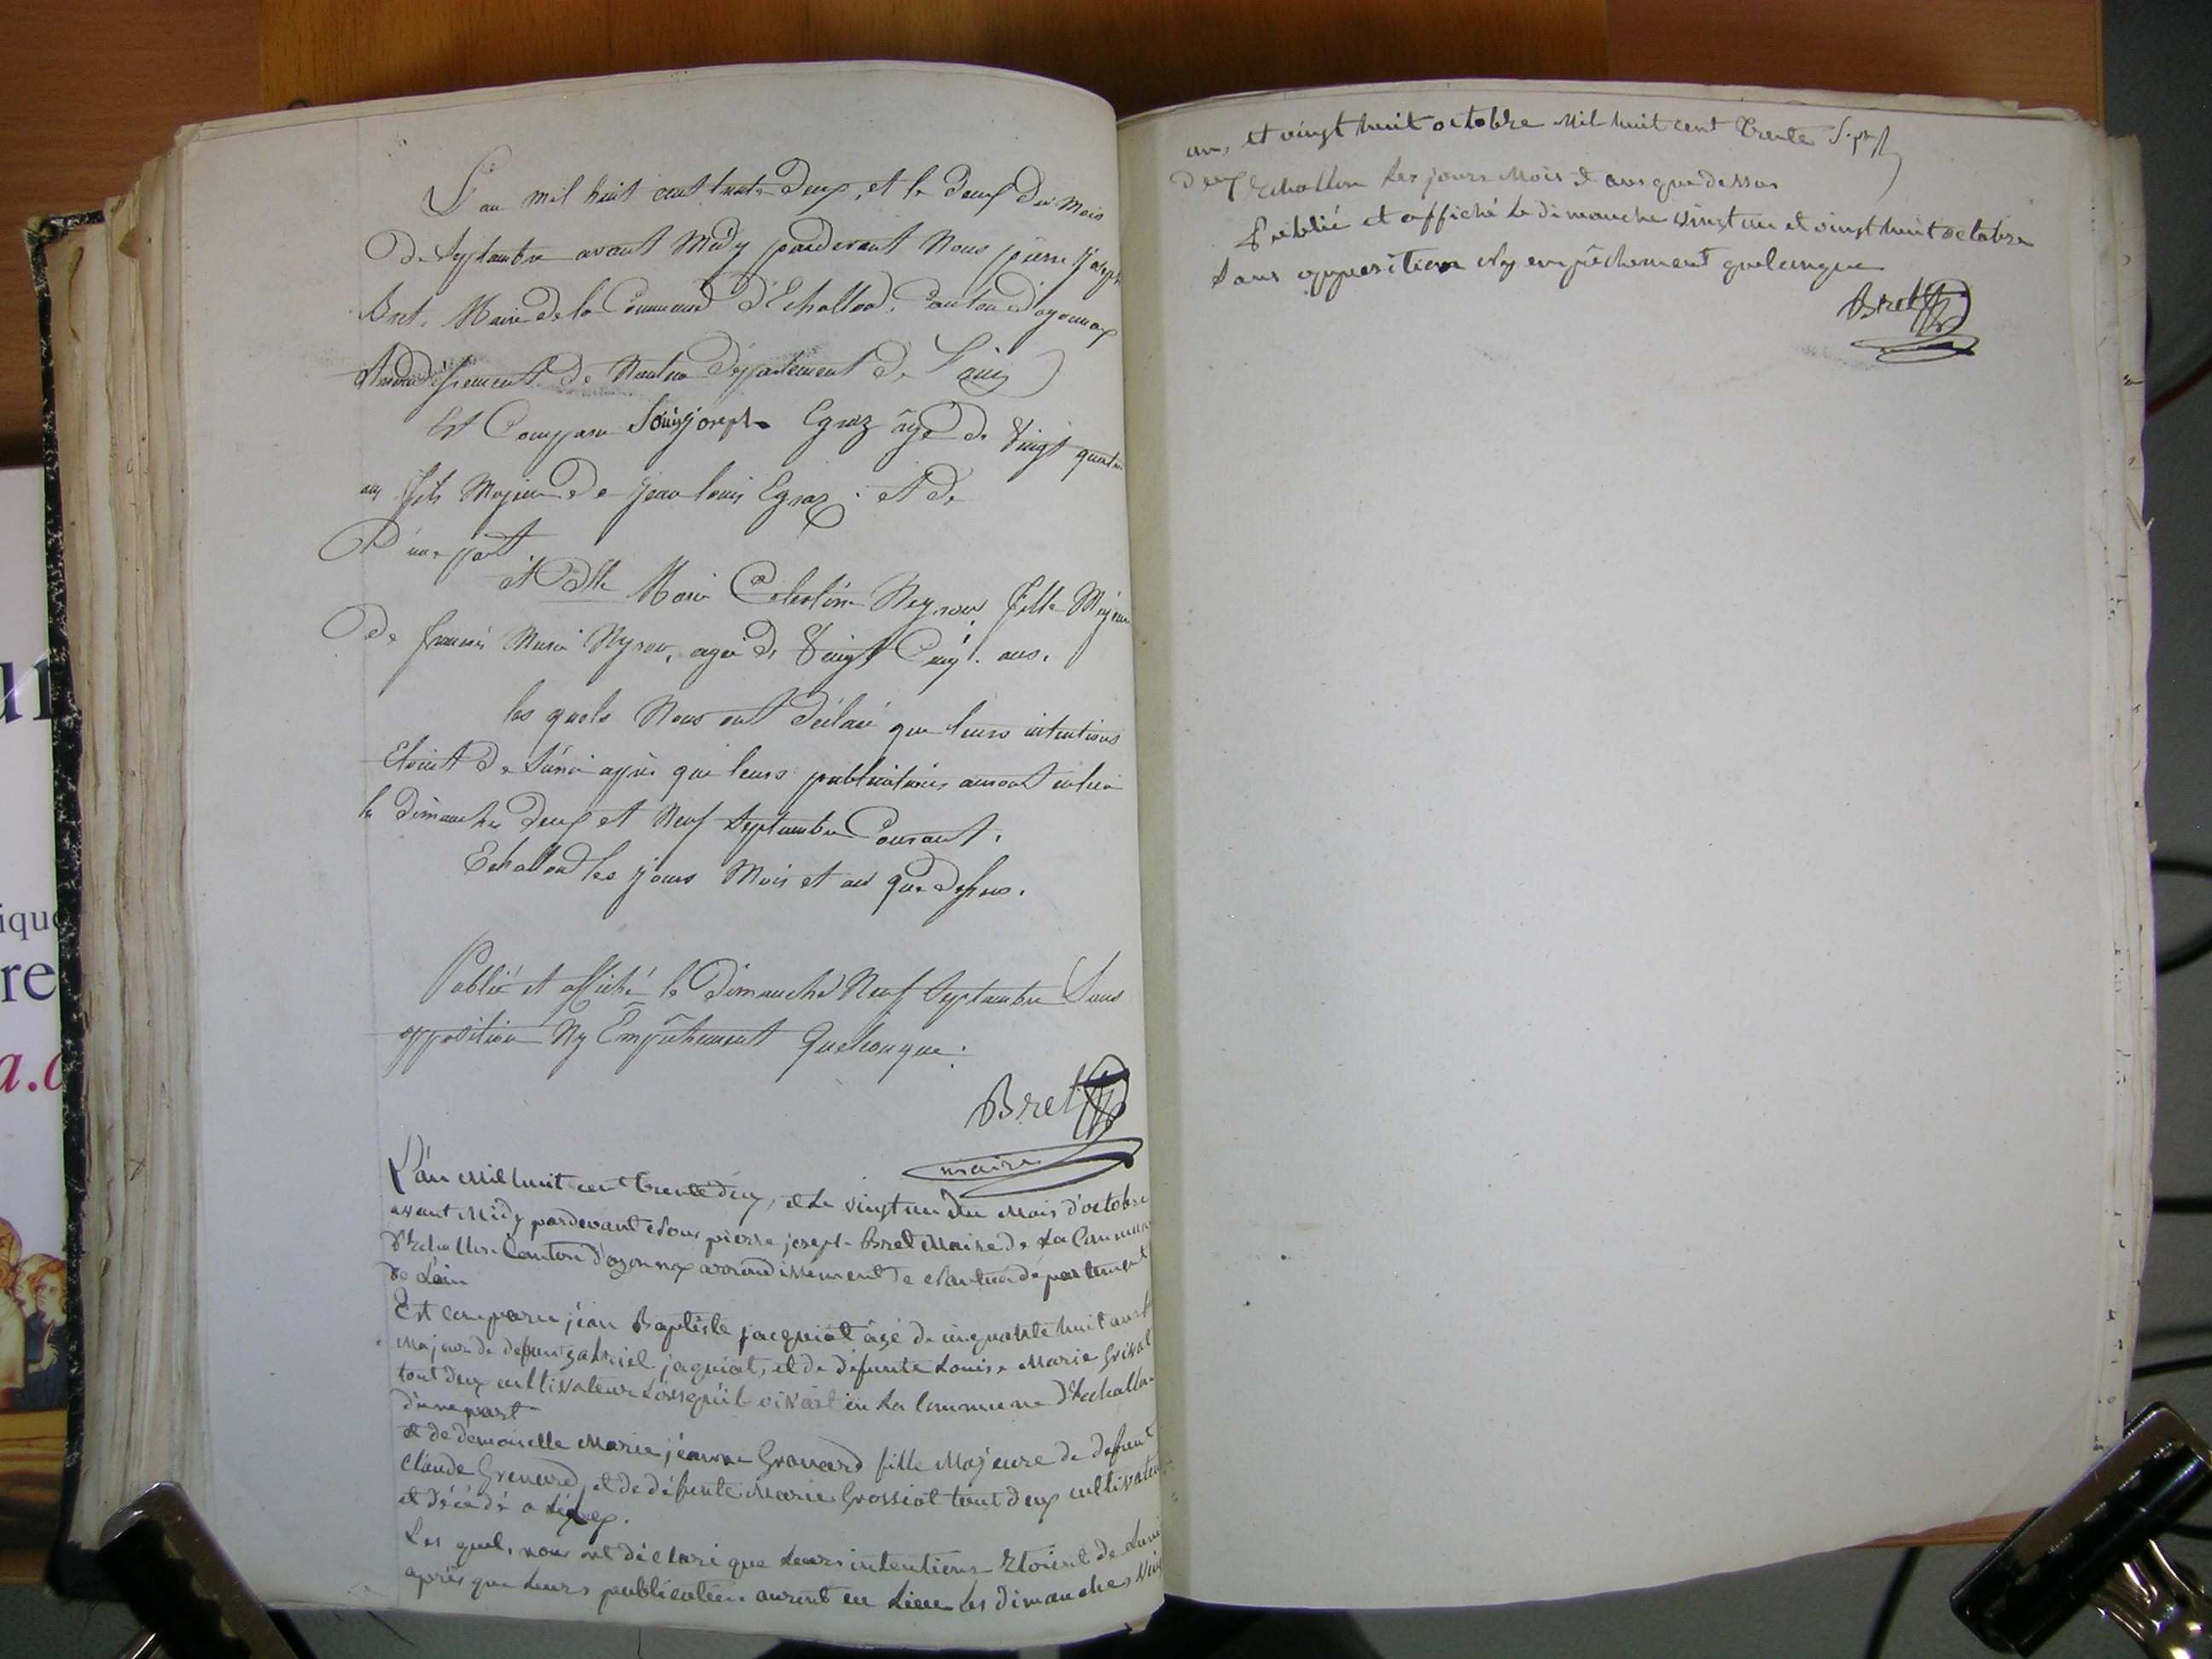 L'an mil huit cent trente deux, et le deux du mois
De Septembre avant Midy pardevant Nous pierre Joseph
Bret, Maire de la Commune d'Echallon, Canton d'oyonnax
Arrondissement de Nantua Département de L'ain
Est Comparu Louis joseph Egraz âgé de Vingt quatre
ans fils Majeur de jean louis Egraz. et de
D'une part
et Dlle Marie Célestine Neyrou, fille Majeure
De francois Marie Neyrou, agée de Vingt Cinq ans.
les quels Nous ont déclaré que leurs intentions
Etoient de s'unir après que leurs publications auront eu lieu
le Dimanches Deux et Neuf Septembre Courant.
Echallon les jours Mois et an que dessus.
Publié et affiché le Dimanche Neuf Septembre Sans
opposition Ny Empêchement Quelconque.
Bret
maire
L'an Mil huit cent trente deux, et le vingt un du Mois d'octobre
avant Midy pardevant Nous pierre joseph Bret Maire de La Commune
d'Echallon Canton d'oyonnax arrondissement de Nantua département
de L'ain
Est comparu jean Baptiste jacquiot âgé de cinquante huit ans
Majeur de defunt gabriel jaquiot, et de défunte Louise Marie Grival
tout deux cultivateur Lorsqu'il vivait en La Commune d'Echallon
d'une part
et de demoiselle Marie jeanne Grenard fille Majeure de defunt
Claude Grenard, et de défunte Marie Grossiot tout deux cultivateur
et décédé a
Les quels nous ont déclaré que Leurs intentions Etoient de s'unir
après que Leurs publication auront eu Lieu les dimanches Vingt
un, et vingt huit octobre Mil huit cent trente
deux Echallon Les jours Mois & ans que dessus
Publié et affiché le dimanche vingt un et vingt huit octobre
Sans opposition Ny empêchement quelconque
Bret